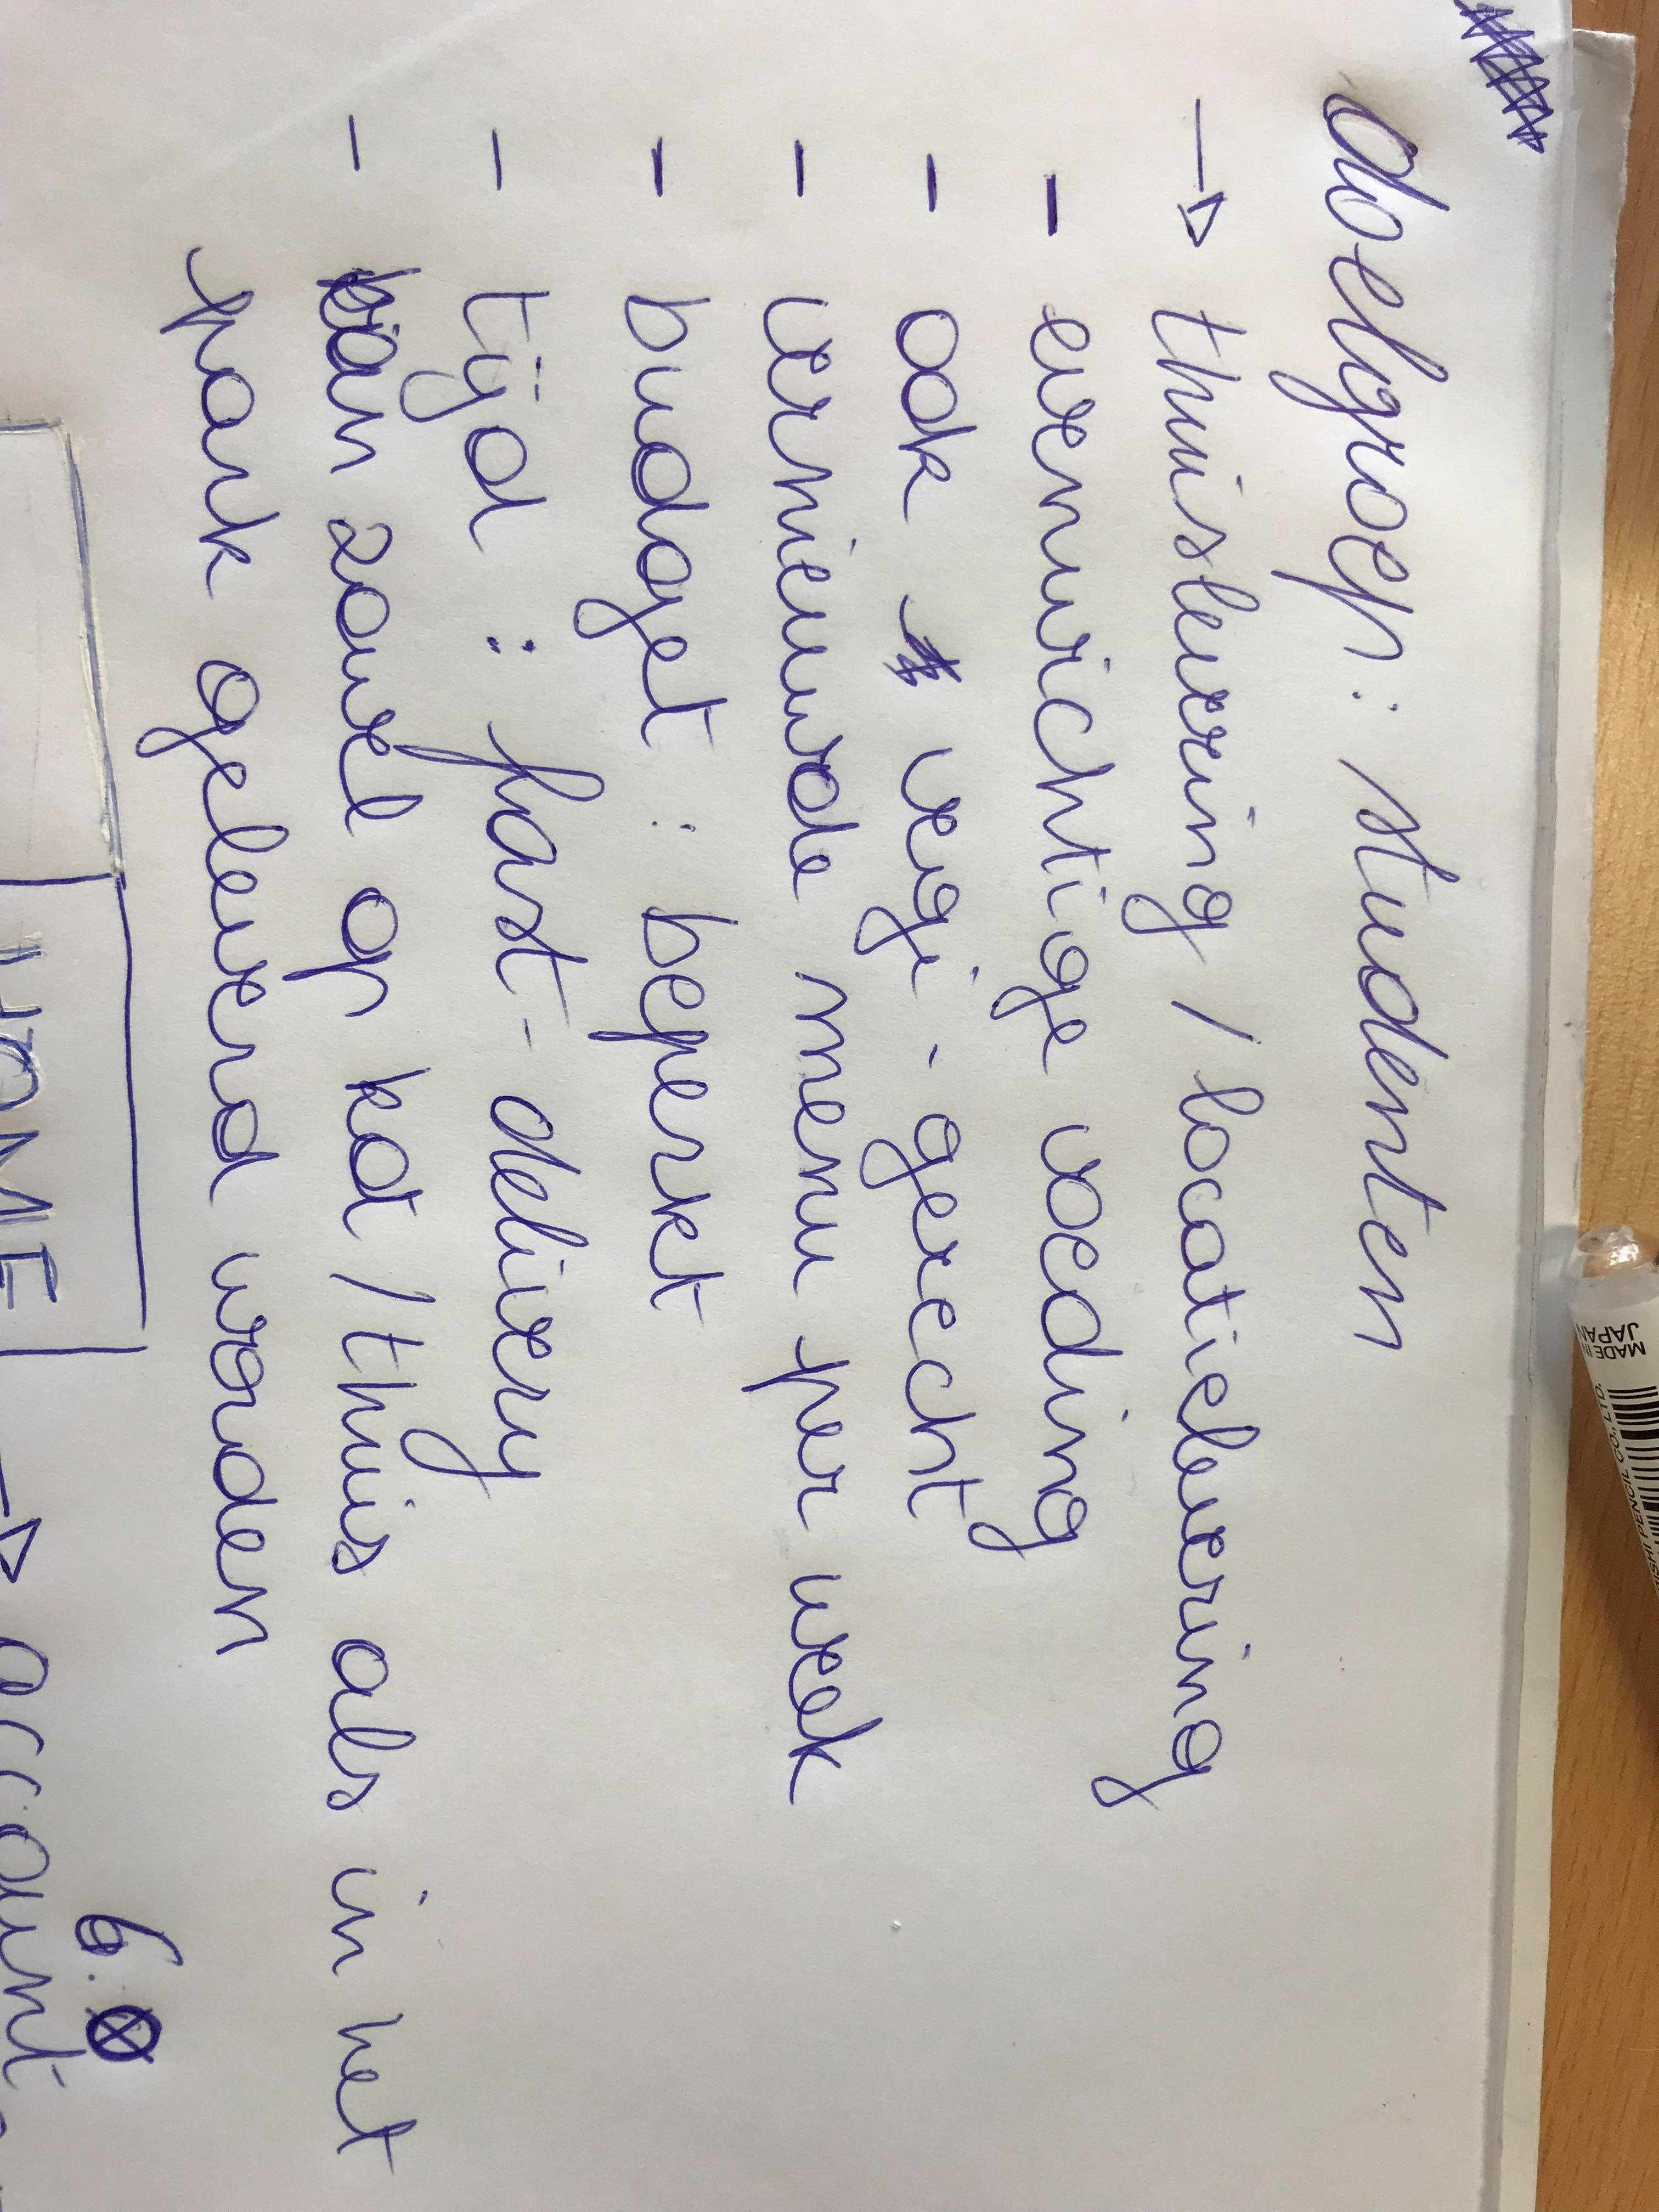 doelgroep: studenten
→ thuislevering / locatielevering
- evenwichtige voeding
- ook vegi-gerecht
- vernieuwde menu per week
- budget: beperkt
- tijd: fast-delivery
- kan zowel op kot / thuis als in het
park geleverd worden
6.
HOME
→ account
MADE IN
JAPAN
PENCIL CO., LTD.